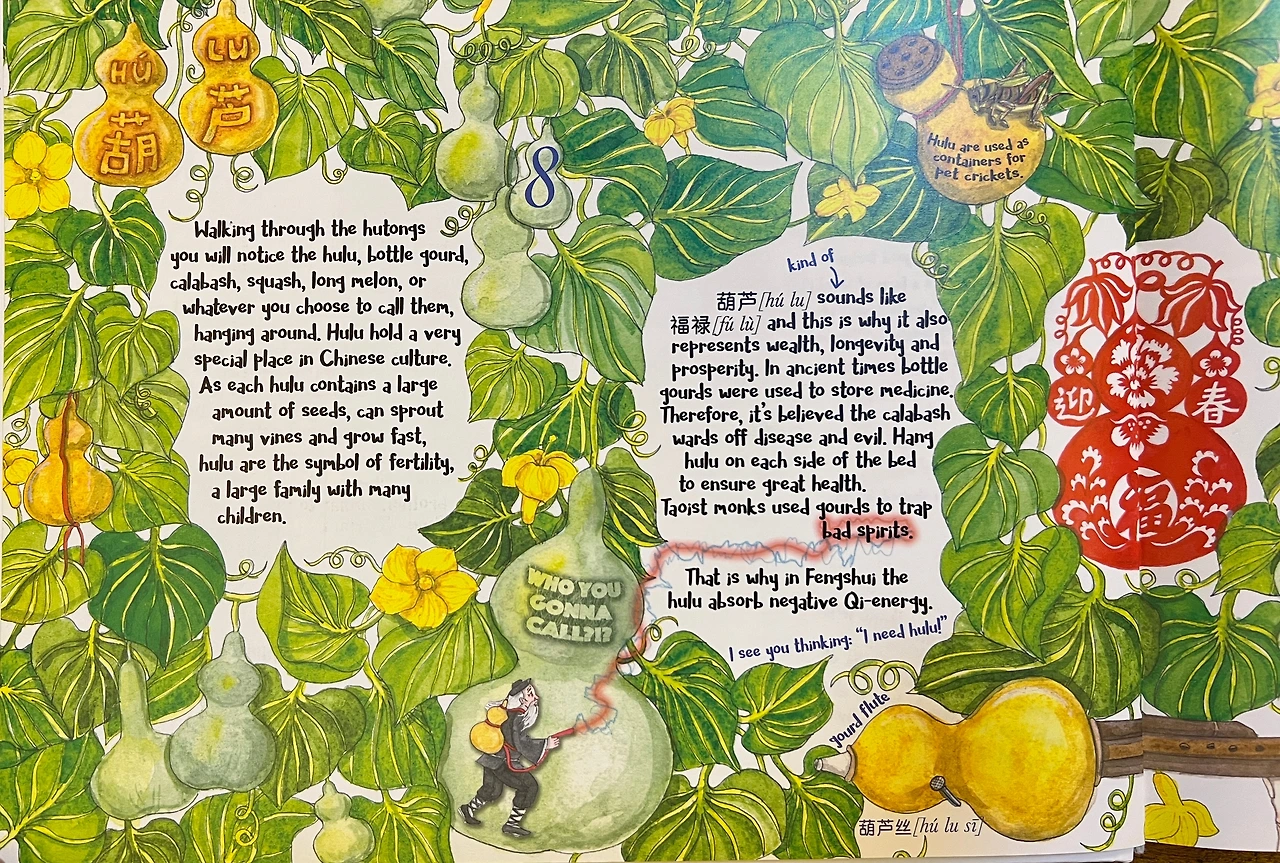 HÚ
葫
LU
芦
8
Walking through the hutongs
you will notice the hulu, bottle gourd,
calabash, squash, long melon, or
whatever you choose to call them,
hanging around. Hulu hold a very
special place in Chinese culture.
As each hulu contains a large
amount of seeds, can sprout
many vines and grow fast,
hulu are the symbol of fertility,
a large family with many
children.
WHO YOU
GONNA
CALL?!?
Hulu are used as
containers for
pet crickets.
kind of
葫芦[hú lu] sounds like
福禄[fú lù] and this is why it also
represents wealth, longevity and
prosperity. In ancient times bottle
gourds were used to store medicine.
Therefore, it's believed the calabash
wards off disease and evil. Hang
hulu on each side of the bed
to ensure great health.
Taoist monks used gourds to trap
bad spirits.
That is why in Fengshui the
hulu absorb negative Qi-energy.
I see you thinking: "I need hulu!"
迎春
福
gourd flute
葫芦丝[hú lu sī]